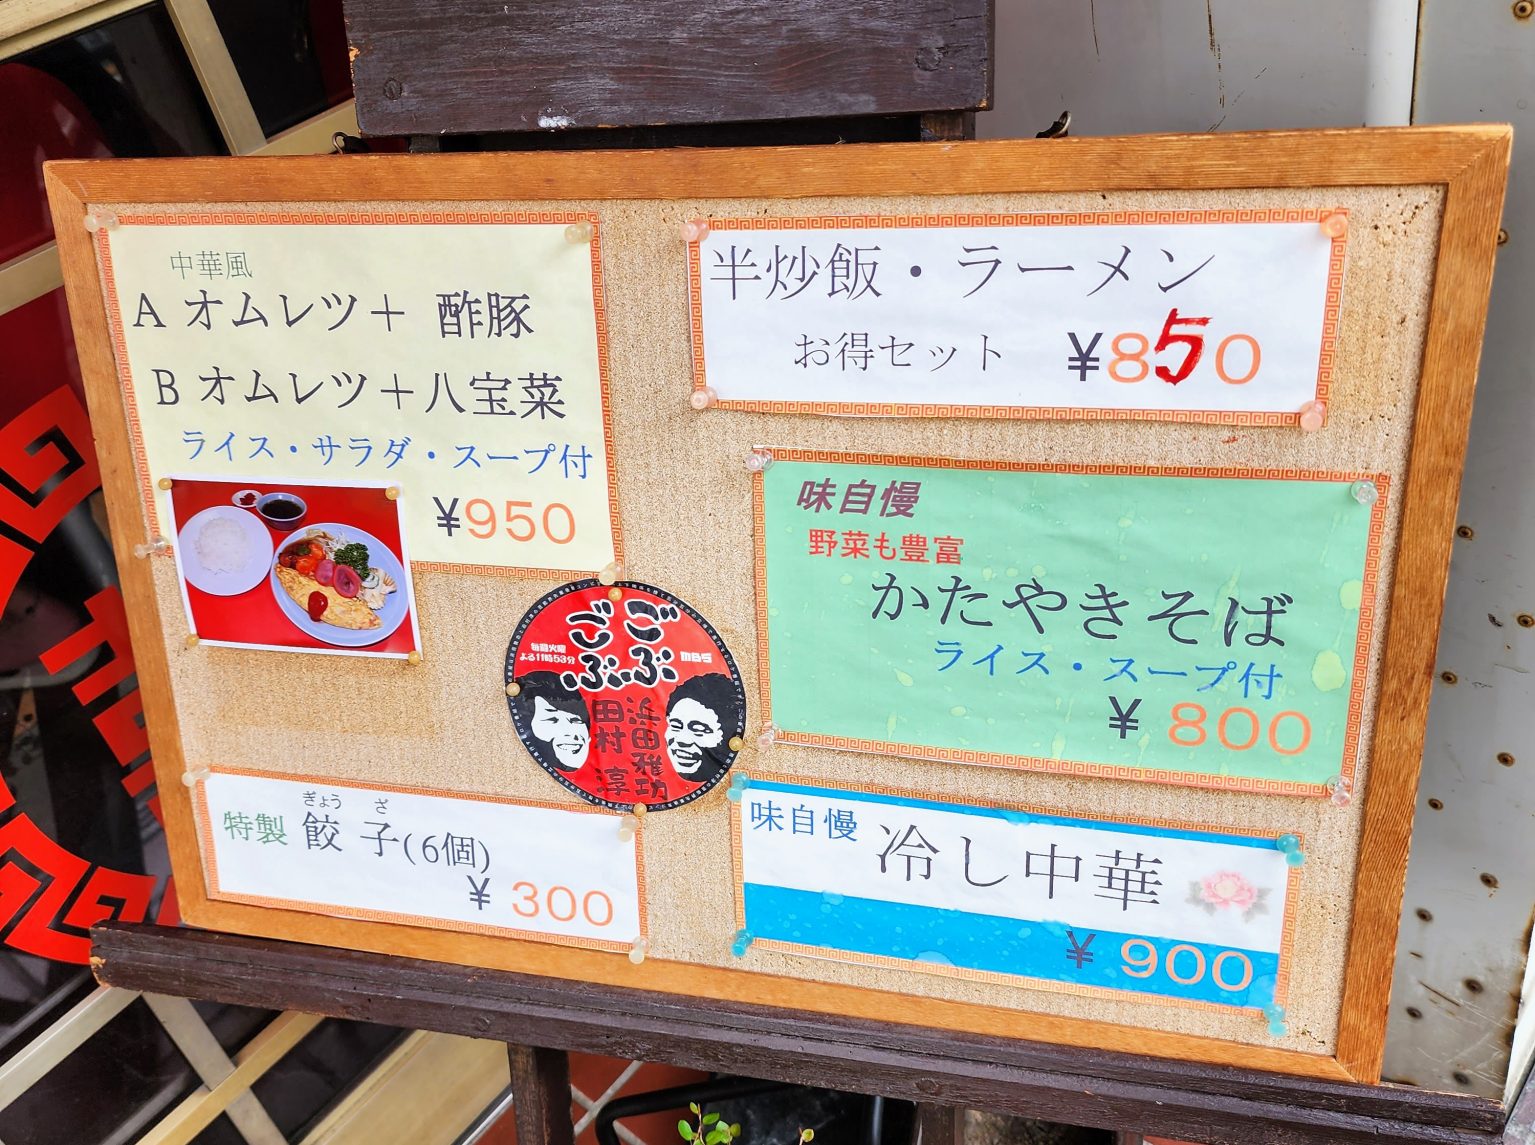 中華風
A オムレツ＋ 酢豚
B オムレツ＋八宝菜
ライス・サラダ・スープ付
¥950
半炒飯・ラーメン
お得セット ¥850
味自慢
野菜も豊富
かたやきそば
ライス・スープ付
¥ 800
ごぶごぶ
毎週火曜
よる11時53分
MBS
浜田雅功
田村 淳
ぎょう ざ
特製 餃 子(6個)
¥ 300
味自慢 冷し中華
¥ 900